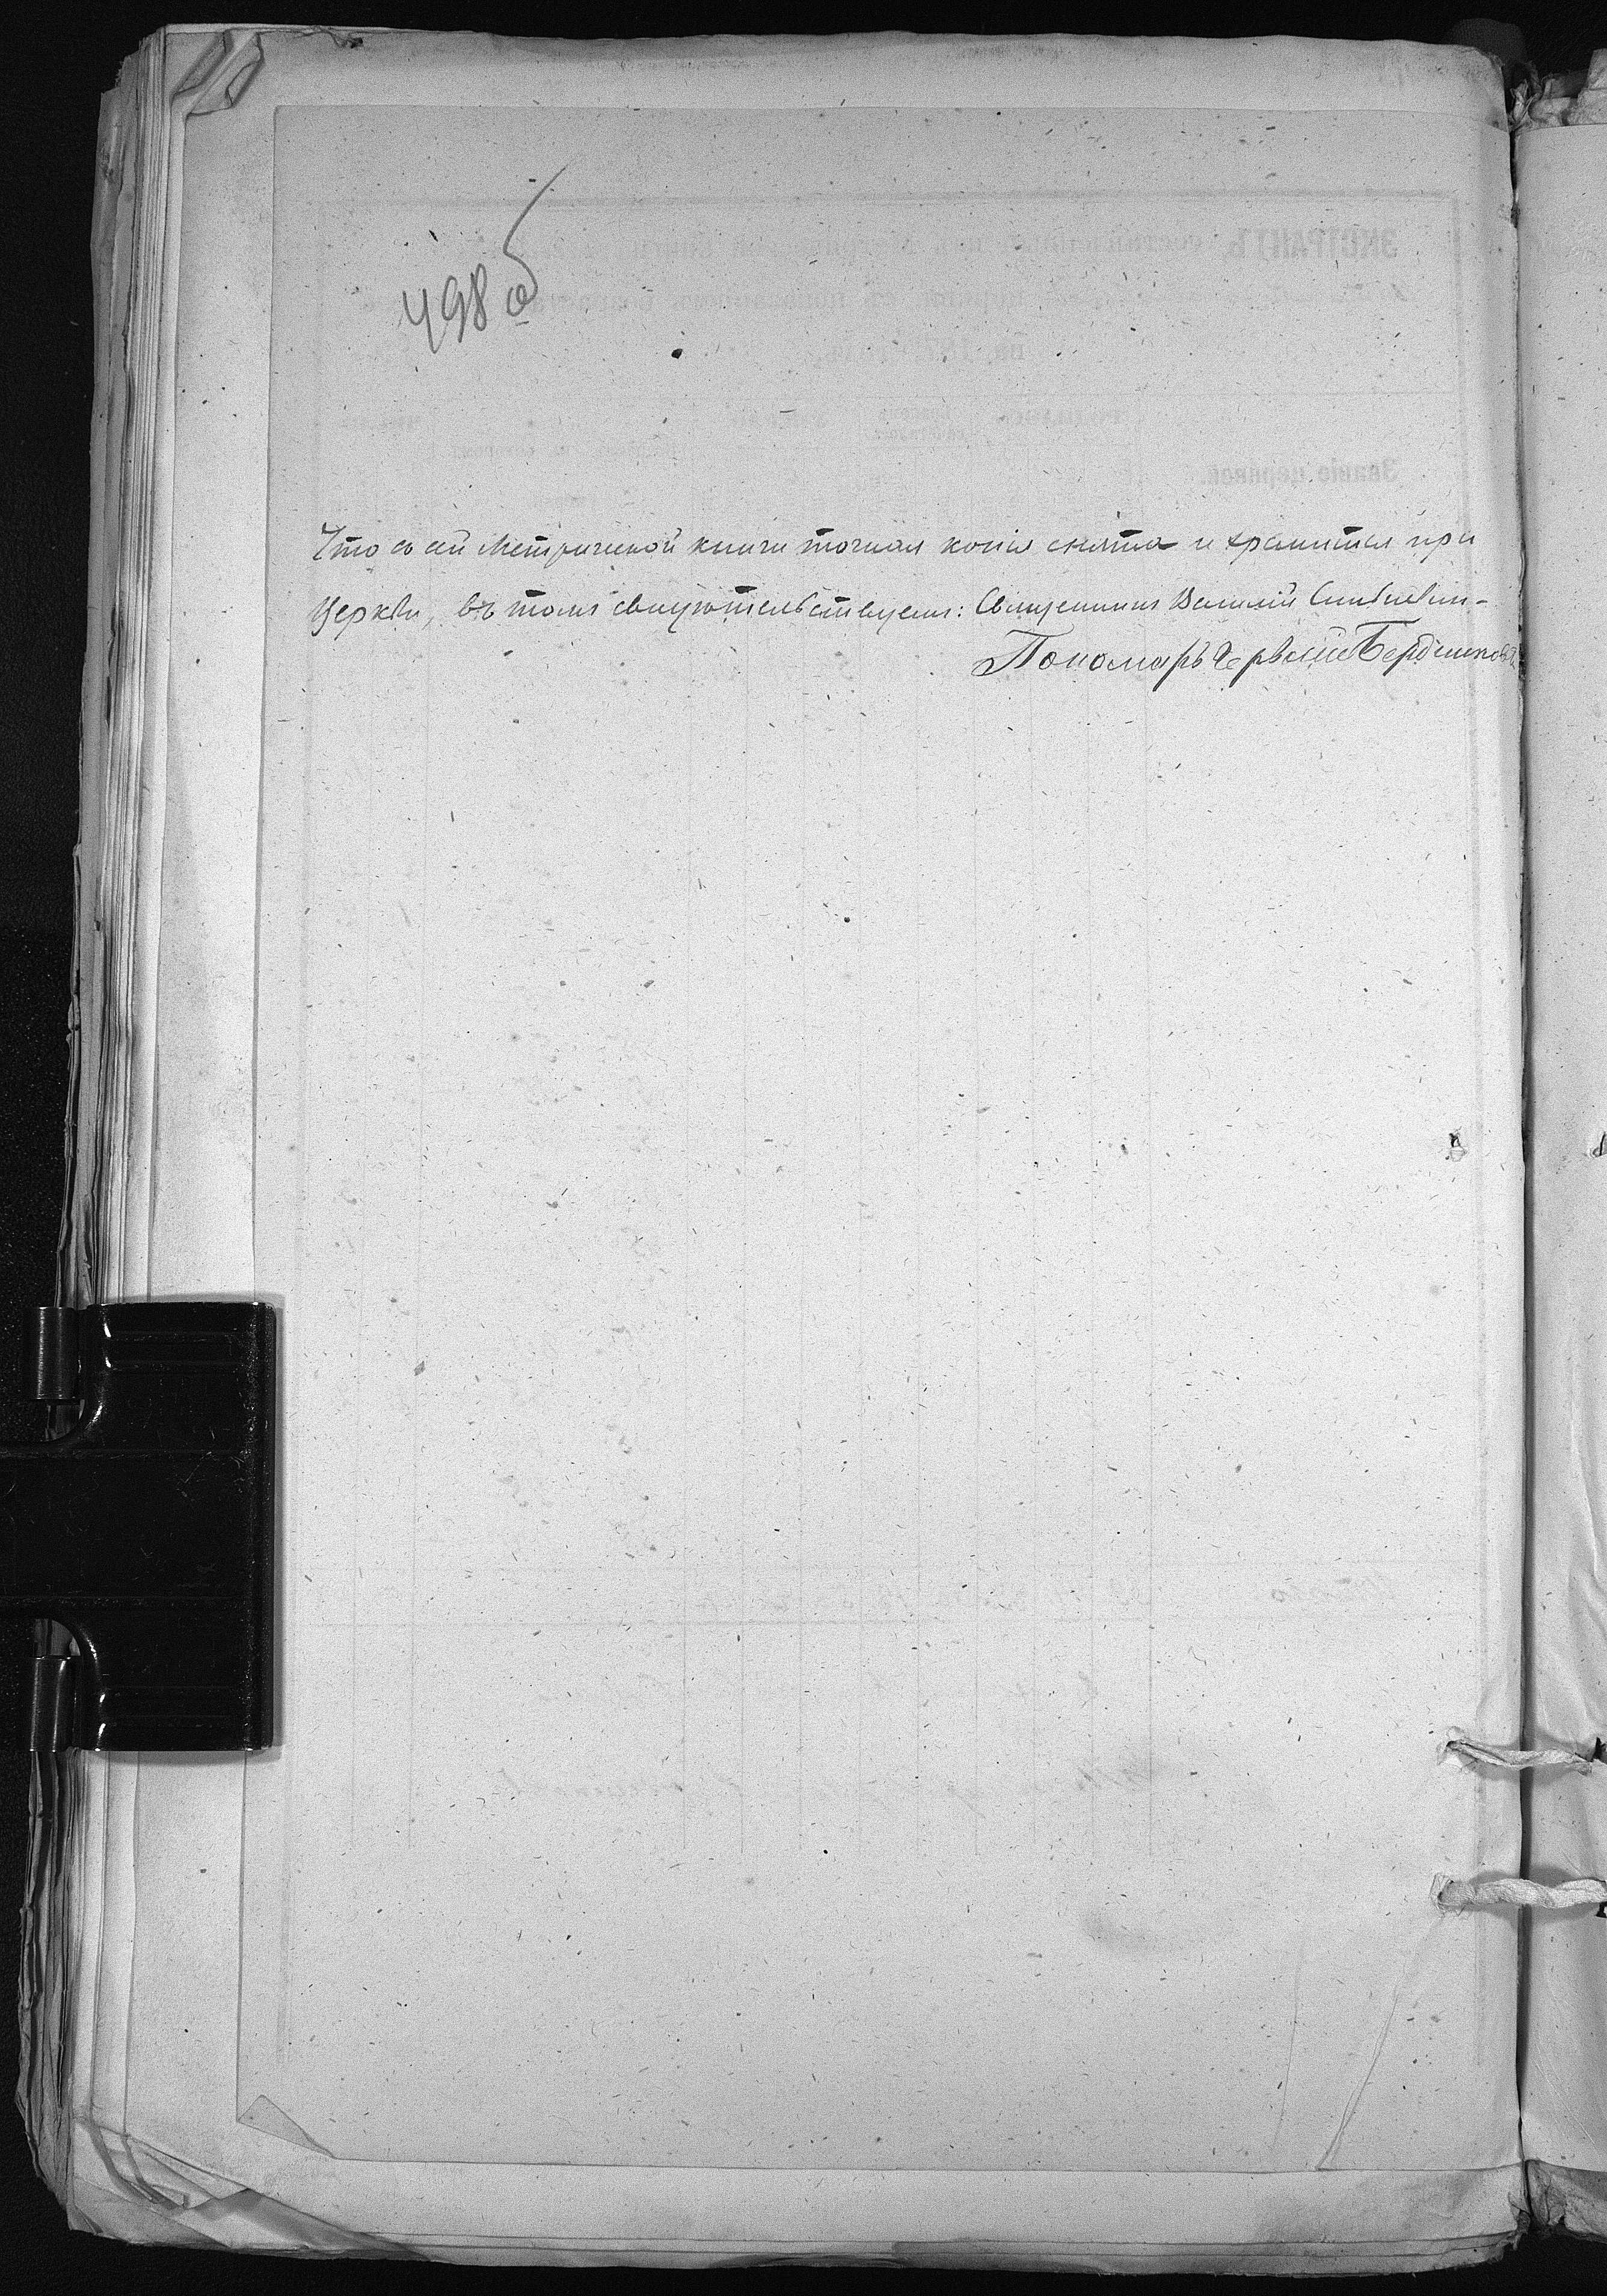 498 об
Что съ сей Метрической книги точная копія снята и хранится при
Церкви, въ томъ свидѣтельствуемъ: Священникъ Василій
Пономарь Бердниковъ
ЭКСТРАКТЪ,
Званіе церквей.